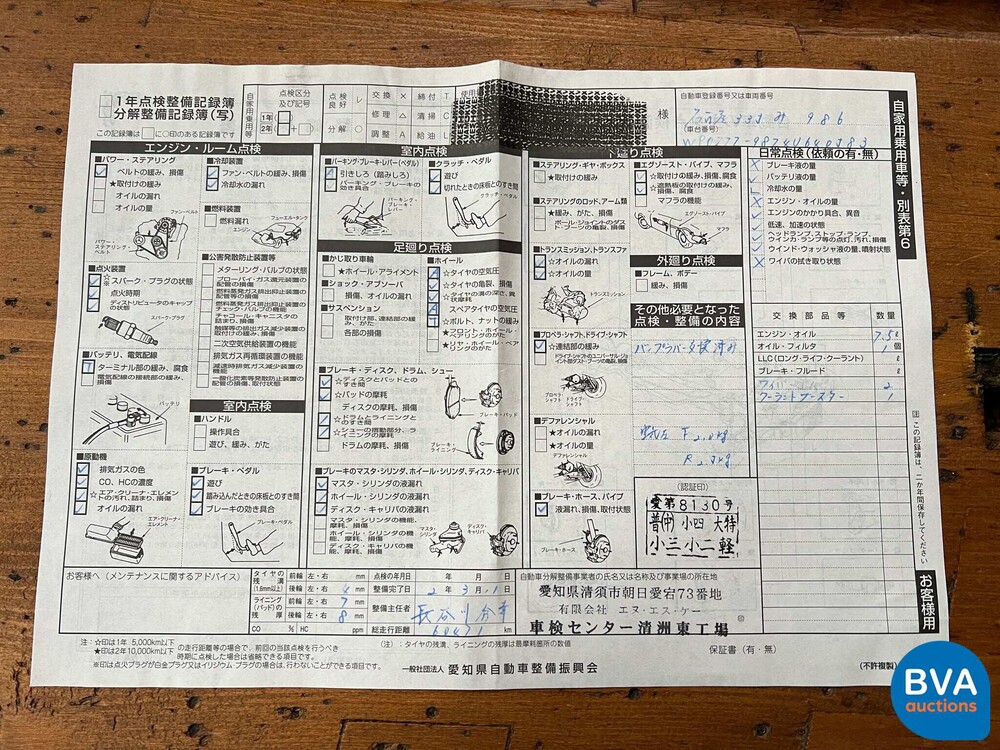 1年点検整備記録簿
分解整備記録簿(写)
この記録簿は□に○印のある記録簿です
自家用乗用等
点検区分
及び記号
1年
2年
点検良好 レ 交換 × 締付 T
修理 △ 清掃 C
分解 ○ 調整 A 給油 L
様
自動車登録番号又は車両番号
986
(車台番号)
自家用乗用車等・別表第6
エンジン・ルーム点検
■パワー・ステアリング
ベルトの緩み、損傷
★取付けの緩み
オイルの漏れ
オイルの量
ファン・ベルト
パワー・ステアリング・ベルト
■点火装置
☆※スパーク・プラグの状態
点火時期
ディストリビュータのキャップの状態
スパーク・プラグ
■バッテリ、電気配線
ターミナル部の緩み、腐食
電気配線の接続部の緩み、損傷
バッテリ
■原動機
排気ガスの色
CO、HCの濃度
☆エア・クリーナ・エレメントの汚れ、詰まり、損傷
オイルの漏れ
エア・クリーナ・エレメント
■冷却装置
ファン・ベルトの緩み、損傷
冷却水の漏れ
■燃料装置
燃料漏れ
フューエル・タンク
エンジン
■公害発散防止装置等
メターリング・バルブの状態
ブローバイ・ガス還元装置の配管の損傷
燃料蒸発ガス排出抑止装置の配管等の損傷
燃料蒸発ガス排出抑止装置のチェック・バルブの機能
チャコール・キャニスタの詰まり、損傷
触媒等の排出ガス減少装置の取付けの緩み、損傷
二次空気供給装置の機能
排気ガス再循環装置の機能
減速時排気ガス減少装置の機能
一酸化炭素等発散防止装置の配管の損傷、取付状態
室内点検
■ハンドル
操作具合
遊び、緩み、がた
■ブレーキ・ペダル
遊び
踏み込んだときの床板とのすき間
ブレーキの効き具合
ブレーキ・ペダル
室内点検
■パーキング・ブレーキ・レバー(ペダル)
引きしろ(踏みしろ)
パーキング・ブレーキの効き具合
パーキング・ブレーキ・レバー
■クラッチ・ペダル
遊び
切れたときの床板とのすき間
クラッチ・ペダル
足廻り点検
■かじ取り車輪
★ホイール・アライメント
■ショック・アブソーバ
損傷、オイルの漏れ
■サスペンション
取付け部、連結部の緩み、がた
各部の損傷
■ホイール
☆タイヤの空気圧
☆タイヤの亀裂、損傷
☆タイヤの溝の深さ、異状摩耗
スペアタイヤの空気圧
☆ボルト、ナットの緩み
★フロント・ホイール・ベアリングのがた
★リヤ・ホイール・ベアリングのがた
■ブレーキ・ディスク、ドラム、シュー
☆ディスクとパッドとのすき間
☆パッドの摩耗
ディスクの摩耗、損傷
☆ドラムとライニングとのすき間
☆シューの摺動部分、ライニングの摩耗
ドラムの摩耗、損傷
ブレーキ・パッド
ブレーキ・ライニング
■ブレーキのマスタ・シリンダ、ホイール・シリンダ、ディスク・キャリパ
マスタ・シリンダの液漏れ
ホイール・シリンダの液漏れ
ディスク・キャリパの液漏れ
マスタ・シリンダの機能、摩耗、損傷
ホイール・シリンダの機能、摩耗、損傷
ディスク・キャリパの機能、摩耗、損傷
マスタ・シリンダ
ディスク・キャリパ
下廻り点検
■ステアリング・ギヤ・ボックス
★取付けの緩み
■ステアリングのロッド、アーム類
★緩み、がた、損傷
ボール・ジョイントのダスト・ブーツの亀裂、損傷
■トランスミッション、トランスファ
☆オイルの漏れ
☆オイルの量
トランスミッション
■プロペラ・シャフト、ドライブ・シャフト
☆連結部の緩み
ドライブ・シャフトのユニバーサル・ジョイント部ダスト・ブーツの亀裂、損傷
プロペラ・シャフト
ドライブ・シャフト
■デファレンシャル
★オイルの漏れ
★オイルの量
デファレンシャル
■ブレーキ・ホース、パイプ
液漏れ、損傷、取付状態
ブレーキ・ホース
■エグゾースト・パイプ、マフラ
☆取付けの緩み、損傷、腐食
☆遮熱板の取付けの緩み、損傷、腐食
マフラの機能
エグゾースト・パイプ
マフラ
外廻り点検
■フレーム、ボデー
緩み、損傷
その他必要となった
点検・整備の内容
F 2.0kg
(認証印)
愛第8130号
普(中)小四 大特
小三 小二 軽
日常点検(依頼の有・無)
ブレーキ液の量
バッテリ液の量
冷却水の量
エンジン・オイルの量
エンジンのかかり具合、異音
低速、加速の状態
ヘッドランプ、ストップ・ランプ、ウインカ・ランプ等の点灯、汚れ、損傷
ウインド・ウォッシャ液の量、噴射状態
ワイパの拭き取り状態
交換部品等 数量
エンジン・オイル 7.5ℓ
オイル・フィルタ 1個
LLC(ロング・ライフ・クーラント) ℓ
ブレーキ・フルード ℓ
ワイパー 2
クーラントブースター 1
注 この記録簿は、二か年間保存してください
お客様用
お客様へ(メンテナンスに関するアドバイス)
タイヤの残溝(1.6mm以上) 前輪 左・右 mm
後輪 左・右 4 mm
ライニング(パッド)の残厚 前輪 左・右 7 mm
後輪 左・右 8 mm
CO % HC ppm
点検の年月日 年 月 日
整備完了日 2年 3月 1日
整備主任者 長谷川
総走行距離 km
自動車分解整備事業者の氏名又は名称及び事業場の所在地
愛知県清須市朝日愛宕73番地
有限会社 エヌ・エス・ケー
車検センター清洲東工場
注:☆印は1年 5,000km以下
★印は2年10,000km以下
の走行距離等の場合で、前回の当該点検を行うべき時期に点検した場合は省略できる項目です。
※印は点火プラグが白金プラグ又はイリジウム・プラグの場合は、行わないことができる項目です。
(注):タイヤの残溝、ライニングの残厚は最摩耗箇所の数値
保証書(有・無)
一般社団法人 愛知県自動車整備振興会
(不許複製)
BVA
auctions